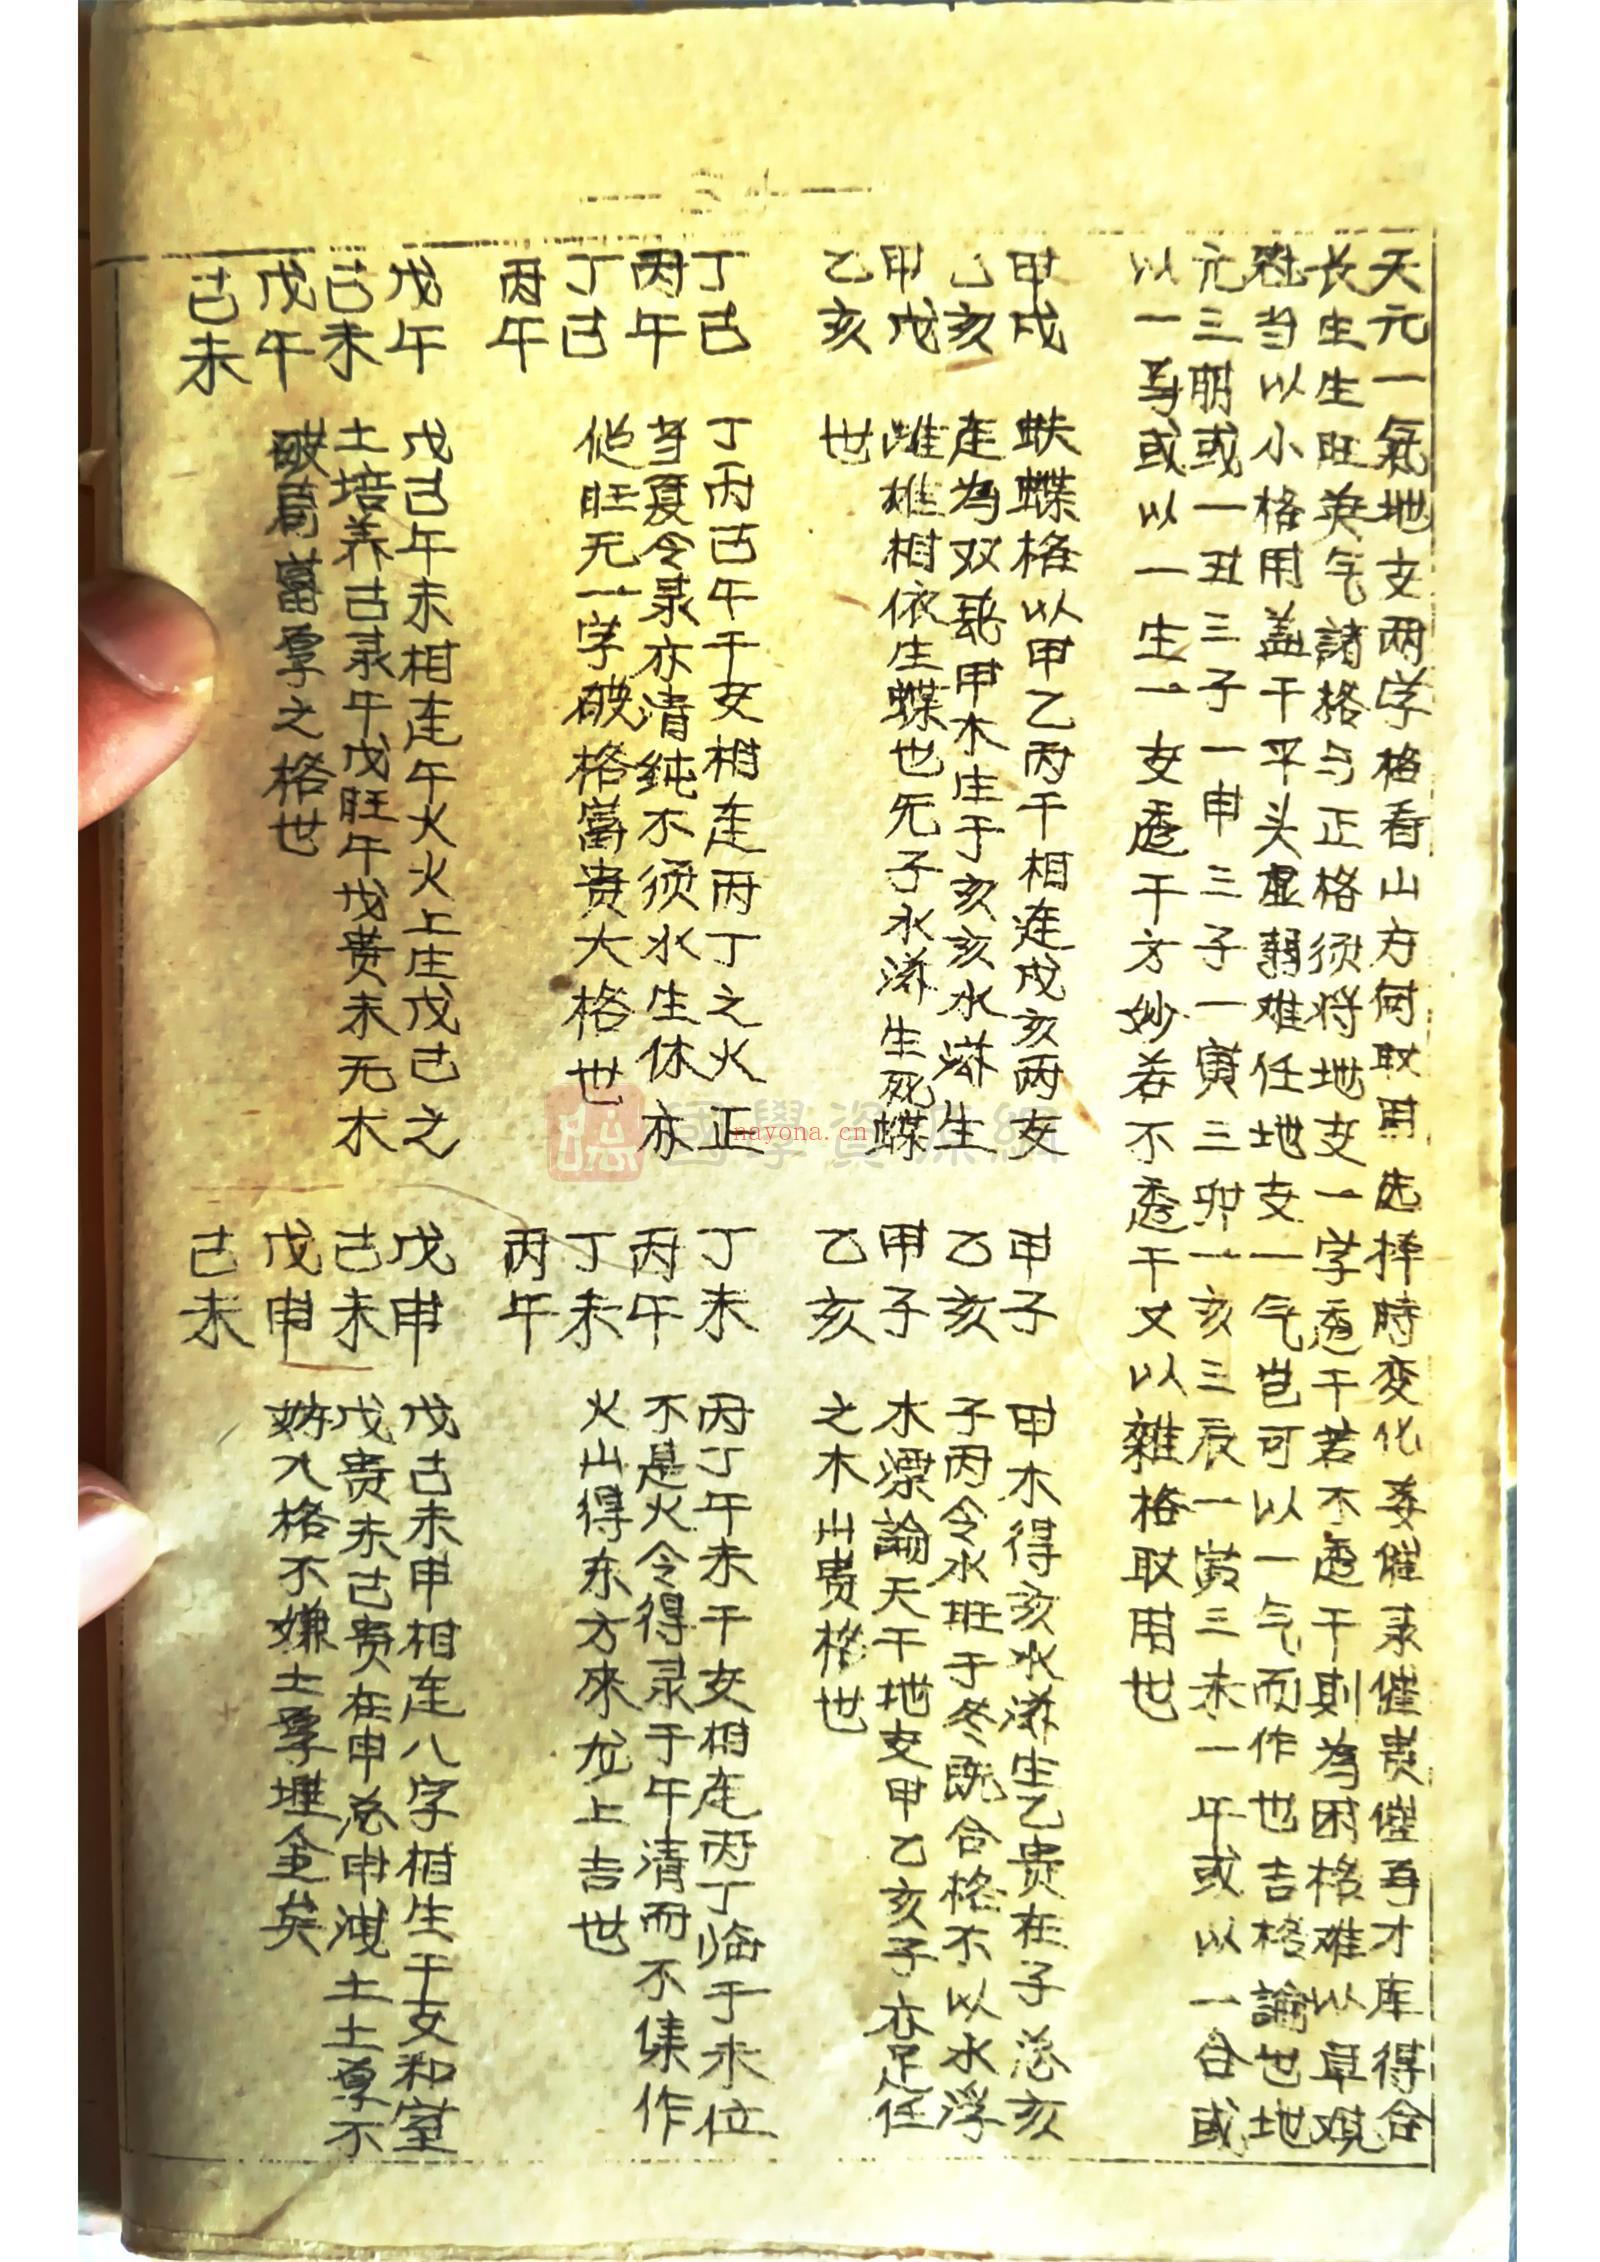 天元一氣地支两字格看山方何取用选择時变化 催录催贵催 才库得合
长生生旺英气諸格与正格须将地支一字透干若不透干則為困格难以卓观
 当以小格用盖干平头虚弱难任地支一气岂可以一气而作也吉格論也地
元三朋或一丑三子一申三子一寅三卯一亥三辰一寅三未一午或以一合或
以一 或以一生一支透干方妙若不透干又以雜格取用世
甲戌
乙亥
甲戌
乙亥
蚨蝶格以甲乙两干相连戌亥两支
连為双 甲木生于亥亥水 生
雌雄相依生蝶也旡子水 生死蝶
世
甲子
乙亥
甲子
乙亥
甲木得亥水 生乙贵在子 亥
子丙令水旺于冬既合格不以水浮
木漂論天干地支甲乙亥子亦足任
之木山贵格世
丁巳
丙午
丁巳
丙午
丁丙巳午干支相连丙丁之火正
当夏令录亦清純不须水生休亦
他旺无一字破格富贵大格世
丁未
丙午
丁未
丙午
丙丁午未干支相连丙丁临于未位
不是火令得录于午清而不集作
火山得东方来龙上吉世
戊午
己未
戊午
己未
戊己午未相连午火火上生戊己之
土培养己录午戊旺午戊贵未无木
破局富厚之格世
戊申
己未
戊申
己未
戊己未申相连八字相生干支和室
戊贵未己贵在申 申洩土土厚不
妨入格不嫌土厚埋金矣
國學資源網
nayona.cn